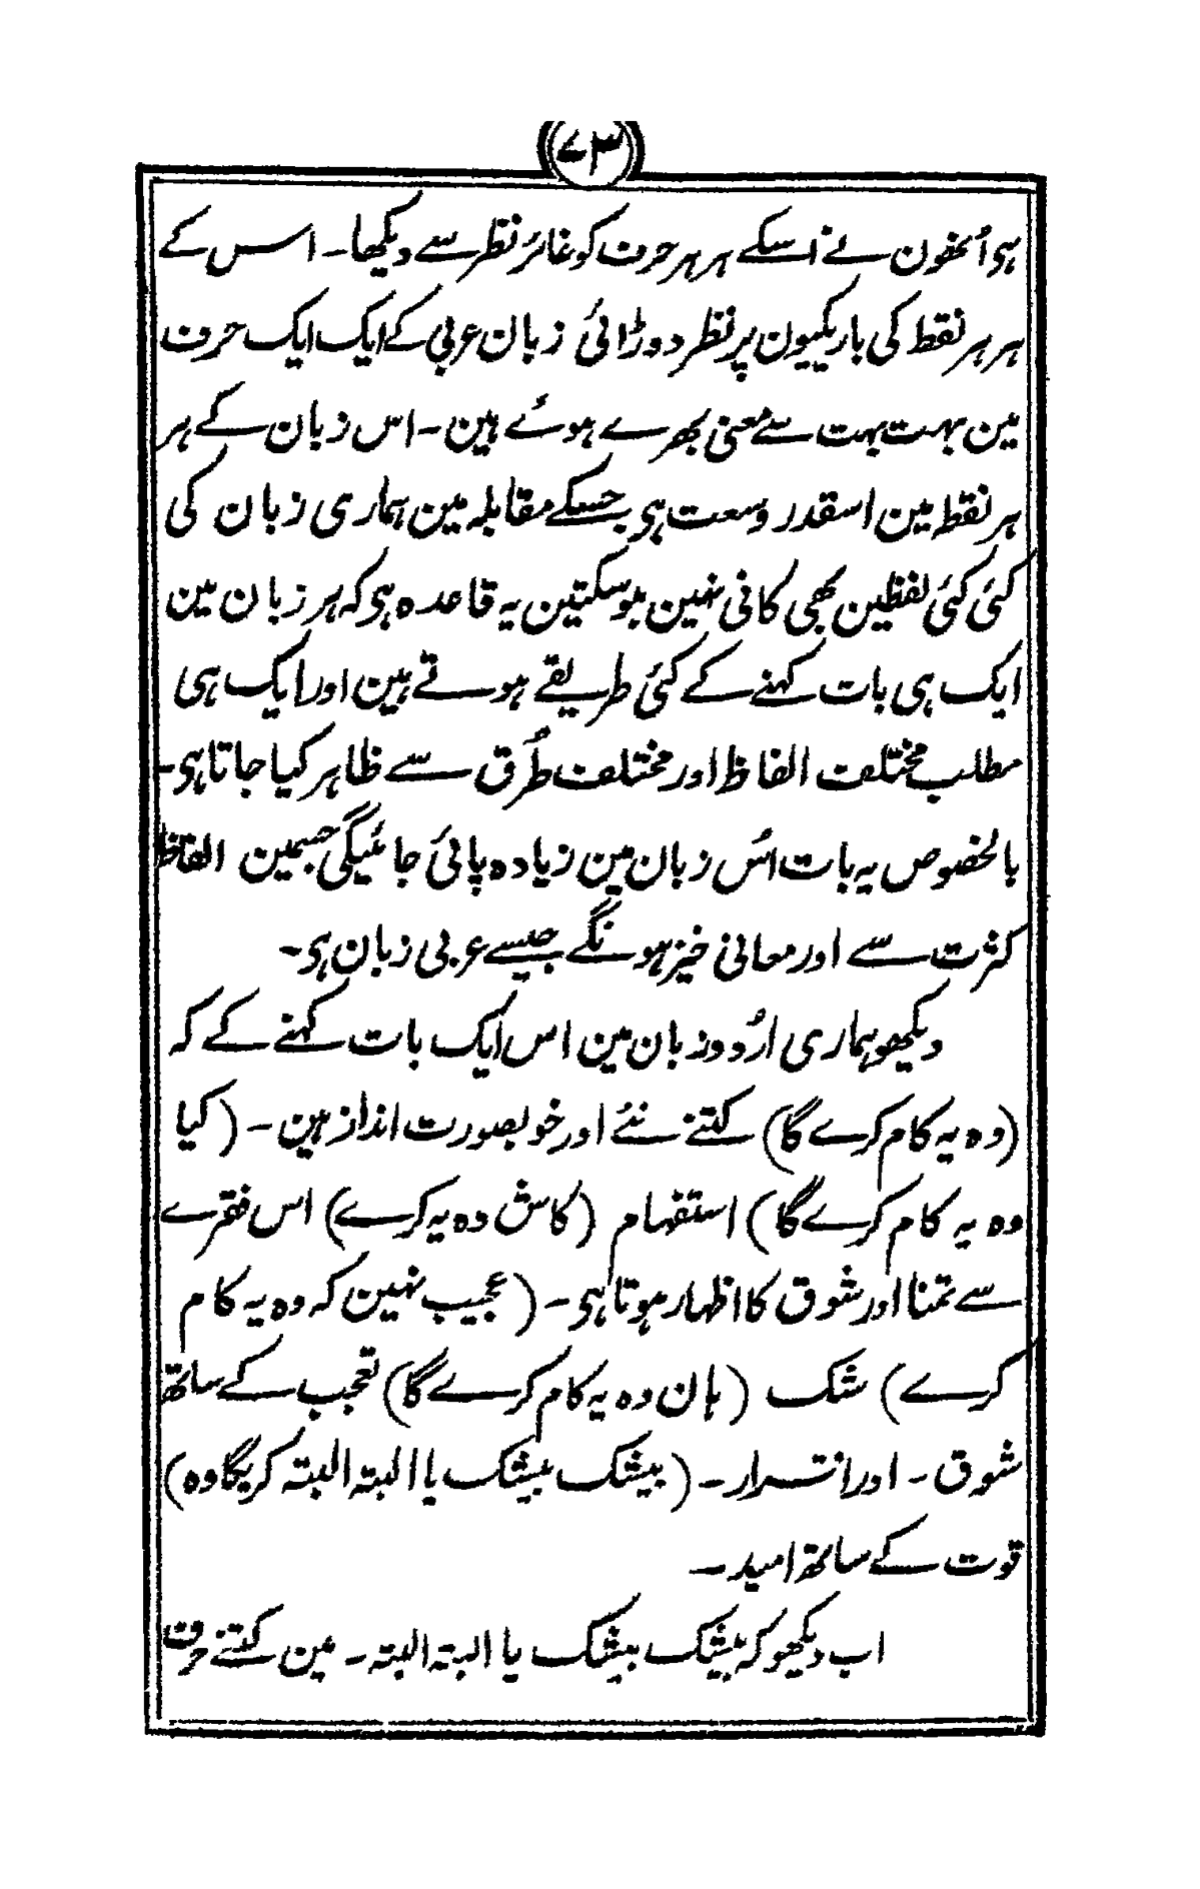 ۷۳
ہی اُنھون نے اسکے ہر ہر حرف کو غائر نظر سے دیکھا۔ اس کے
ہر ہر نقط کی باریکیون پر نظر دوڑائی زبان عربی کے ایک ایک حرف
مین بہت بہت سے معنی بھرے ہوئے ہین۔ اس زبان کے ہر
ہر نقط مین اسقدر وسعت ہی جسکے مقابلہ مین ہماری زبان کی
کئی کئی لفظین بھی کافی نہین ہوسکتین یہ قاعدہ ہی کہ ہر زبان مین
ایک ہی بات کہنے کے کئی طریقے ہوتے ہین اور ایک ہی
مطلب مختلف الفاظ اور مختلف طُرق سے ظاہر کیا جاتا ہی۔
بالخصوص یہ بات اُس زبان مین زیادہ پائی جائیگی جسمین الفاظ
کثرت سے اور معانی خیز ہونگے جیسے عربی زبان ہی۔
دیکھو ہماری اُردو زبان مین اس ایک بات کہنے کے کہ
(وہ یہ کام کرے گا) کتنے نئے اور خوبصورت انداز ہین۔ (کیا
وہ یہ کام کرے گا) استفہام (کاش وہ یہ کرے) اس فقرے
سے تمنا اور شوق کا اظہار ہوتا ہی۔ (عجیب نہین کہ وہ یہ کام
کرے) شک (ہان وہ یہ کام کرے گا) تعجب کے ساتھ
شوق۔ اور اقرار۔ (بیشک بیشک یا البتہ البتہ کریگا وہ)
قوت کے ساتھ امید۔
اب دیکھو کہ بیشک بیشک یا البتہ البتہ۔ مین کتنے حرف